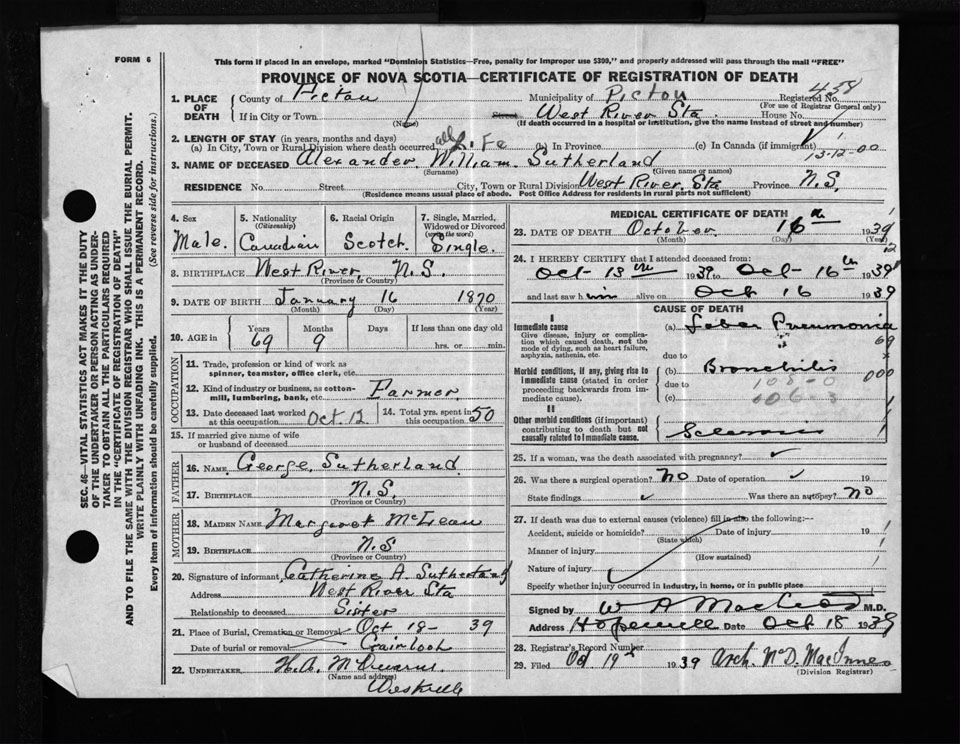 FORM 6
This form if placed in an envelope, marked "Dominion Statistics—Free, penalty for improper use $300," and properly addressed will pass through the mail "FREE"
PROVINCE OF NOVA SCOTIA—CERTIFICATE OF REGISTRATION OF DEATH
SEC. 46—VITAL STATISTICS ACT MAKES IT THE DUTY
OF THE UNDERTAKER OR PERSON ACTING AS UNDER-
TAKER TO OBTAIN ALL THE PARTICULARS REQUIRED
IN THE "CERTIFICATE OF REGISTRATION OF DEATH"
AND TO FILE THE SAME WITH THE DIVISION REGISTRAR WHO SHALL ISSUE THE BURIAL PERMIT.
WRITE PLAINLY WITH UNFADING INK. THIS IS A PERMANENT RECORD.
Every item of information should be carefully supplied. (See reverse side for instructions.)
1. PLACE OF DEATH County of Pictou Municipality of Pictou Registered No. 458
(For use of Registrar General only)
If in City or Town Street West River Sta. House No.
(Name) (If death occurred in a hospital or institution, give the name instead of street and number)
2. LENGTH OF STAY (in years, months and days)
(a) In City, Town or Rural Division where death occurred all Life (b) In Province (c) In Canada (if immigrant)
13-12-00
3. NAME OF DECEASED Alexander William Sutherland
(Surname) (Given name or names)
RESIDENCE No. Street City, Town or Rural Division West River, Sta Province N.S.
(Residence means usual place of abode. Post Office Address for residents in rural parts not sufficient)
4. Sex Male.
5. Nationality (Citizenship) Canadian
6. Racial Origin Scotch
7. Single, Married, Widowed or Divorced (write the word) Single.
8. BIRTHPLACE West River, N.S.
(Province or Country)
9. DATE OF BIRTH January 16 1870
(Month) (Day) (Year)
10. AGE in Years 69 Months 9 Days If less than one day old hrs. or min.
OCCUPATION
11. Trade, profession or kind of work as spinner, teamster, office clerk, etc.
12. Kind of industry or business, as cotton-mill, lumbering, bank, etc. Farmer
13. Date deceased last worked at this occupation Oct. 12 14. Total yrs. spent in this occupation 50
15. If married give name of wife or husband of deceased
FATHER
16. NAME George Sutherland
17. BIRTHPLACE N.S.
(Province or Country)
MOTHER
18. MAIDEN NAME Margaret McLean
19. BIRTHPLACE N.S
(Province or Country)
20. Signature of informant Catherine A. Sutherland
Address West River Sta
Relationship to deceased Sister
21. Place of Burial, Cremation or Removal Oct 18- 39
Date of burial or removal Gairloch
22. UNDERTAKER H.A.
(Name and address)
Westville
MEDICAL CERTIFICATE OF DEATH
23. DATE OF DEATH October 16th 1939
(Month) (Day) (Year)
24. I HEREBY CERTIFY that I attended deceased from:
Oct-13th 1939 to Oct-16th 1939
and last saw him alive on Oct 16 1939
CAUSE OF DEATH
I
Immediate cause
Give disease, injury or complication which caused death, not the mode of dying, such as heart failure, asphyxia, asthenia, etc.
(a) Lobar Pneumonia
69
due to
Morbid conditions, if any, giving rise to immediate cause (stated in order proceeding backwards from immediate cause).
(b) Bronchitis
000
due to 108-0
(c) 106-3
II
Other morbid conditions (if important) contributing to death but not causally related to immediate cause.
25. If a woman, was the death associated with pregnancy?
26. Was there a surgical operation? No Date of operation 19
State findings Was there an autopsy? No
27. If death was due to external causes (violence) fill in also the following:—
Accident, suicide or homicide? Date of injury 19
(State which)
Manner of injury
(How sustained)
Nature of injury
Specify whether injury occurred in industry, in home, or in public place
Signed by W A MacLeod M.D.
Address Hopewell Date Oct 18 1939
28. Registrar's Record Number
29. Filed Oct 19th 1939 Arch. McD. MacInnes
(Division Registrar)